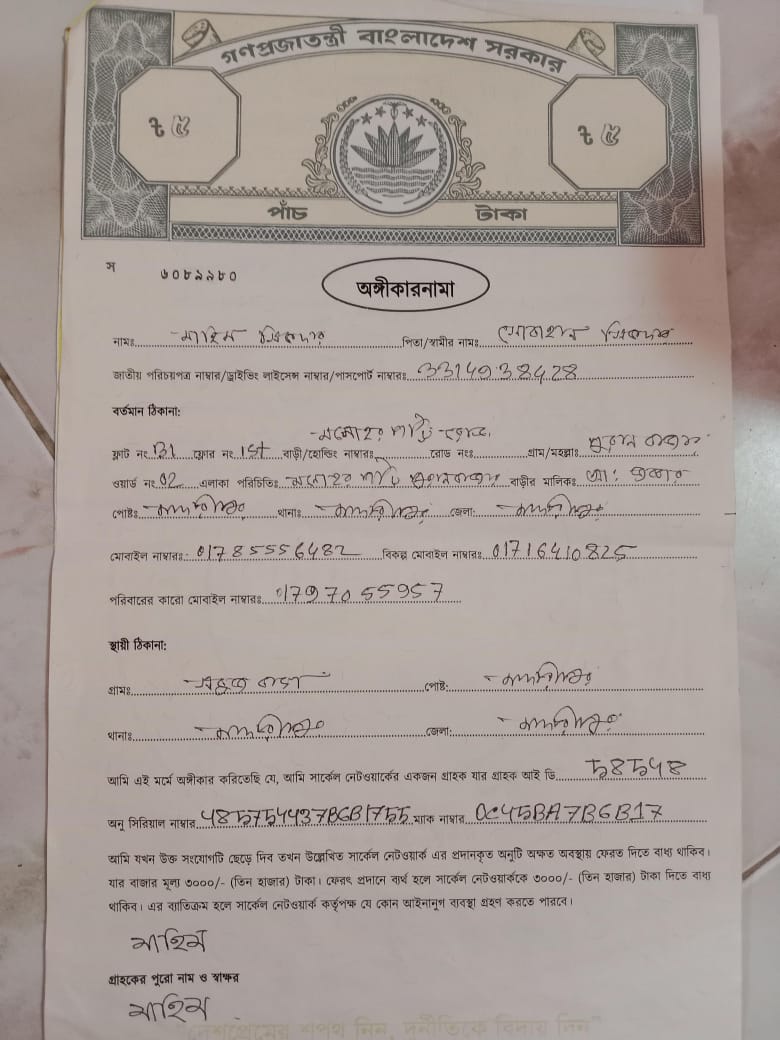 গণপ্রজাতন্ত্রী বাংলাদেশ সরকার
৳ ৫ ৳ ৫
পাঁচ টাকা
স ৬০৮৯৯৮০
অঙ্গীকারনামা
নামঃ মাহিম সিকদার পিতা/স্বামীর নামঃ সোবাহান সিকদার
জাতীয় পরিচয়পত্র নাম্বার/ড্রাইভিং লাইসেন্স নাম্বার/পাসপোর্ট নাম্বারঃ 3314938428
বর্তমান ঠিকানা:
ফ্লাট নং B1 ফ্লোর নং 1St বাড়ী/হোল্ডিং নাম্বারঃ রোড নংঃ গ্রাম/মহল্লাঃ পুরান বাজার
ওয়ার্ড নং 02 এলাকা পরিচিতিঃ পুরানবাজার বাড়ীর মালিকঃ
পোষ্টঃ মাদারীপুর থানাঃ মাদারীপুর জেলা: মাদারীপুর
মোবাইল নাম্বারঃ 01785556482 বিকল্প মোবাইল নাম্বারঃ 01716410825
পরিবারের কারো মোবাইল নাম্বারঃ 01797055957
স্থায়ী ঠিকানা:
গ্রামঃ পোষ্ট: মাদারীপুর
থানাঃ মাদারীপুর জেলা: মাদারীপুর
আমি এই মর্মে অঙ্গীকার করিতেছি যে, আমি সার্কেল নেটওয়ার্কের একজন গ্রাহক যার গ্রাহক আই ডি 58548
অনু সিরিয়াল নাম্বার 485754437B6B1755 ম্যাক নাম্বার 0C45BA7B6B17
আমি যখন উক্ত সংযোগটি ছেড়ে দিব তখন উল্লেখিত সার্কেল নেটওয়ার্ক এর প্রদানকৃত অনুটি অক্ষত অবস্থায় ফেরত দিতে বাধ্য থাকিব।
যার বাজার মূল্য ৩০০০/- (তিন হাজার) টাকা। ফেরৎ প্রদানে ব্যর্থ হলে সার্কেল নেটওয়ার্ককে ৩০০০/- (তিন হাজার) টাকা দিতে বাধ্য
থাকিব। এর ব্যতিক্রম হলে সার্কেল নেটওয়ার্ক কর্তৃপক্ষ যে কোন আইনানুগ ব্যবস্থা গ্রহণ করতে পারবে।
মাহিম
গ্রাহকের পুরো নাম ও স্বাক্ষর
মাহিম
"দেশপ্রেমের শপথ নিন, দুর্নীতিকে বিদায় দিন"